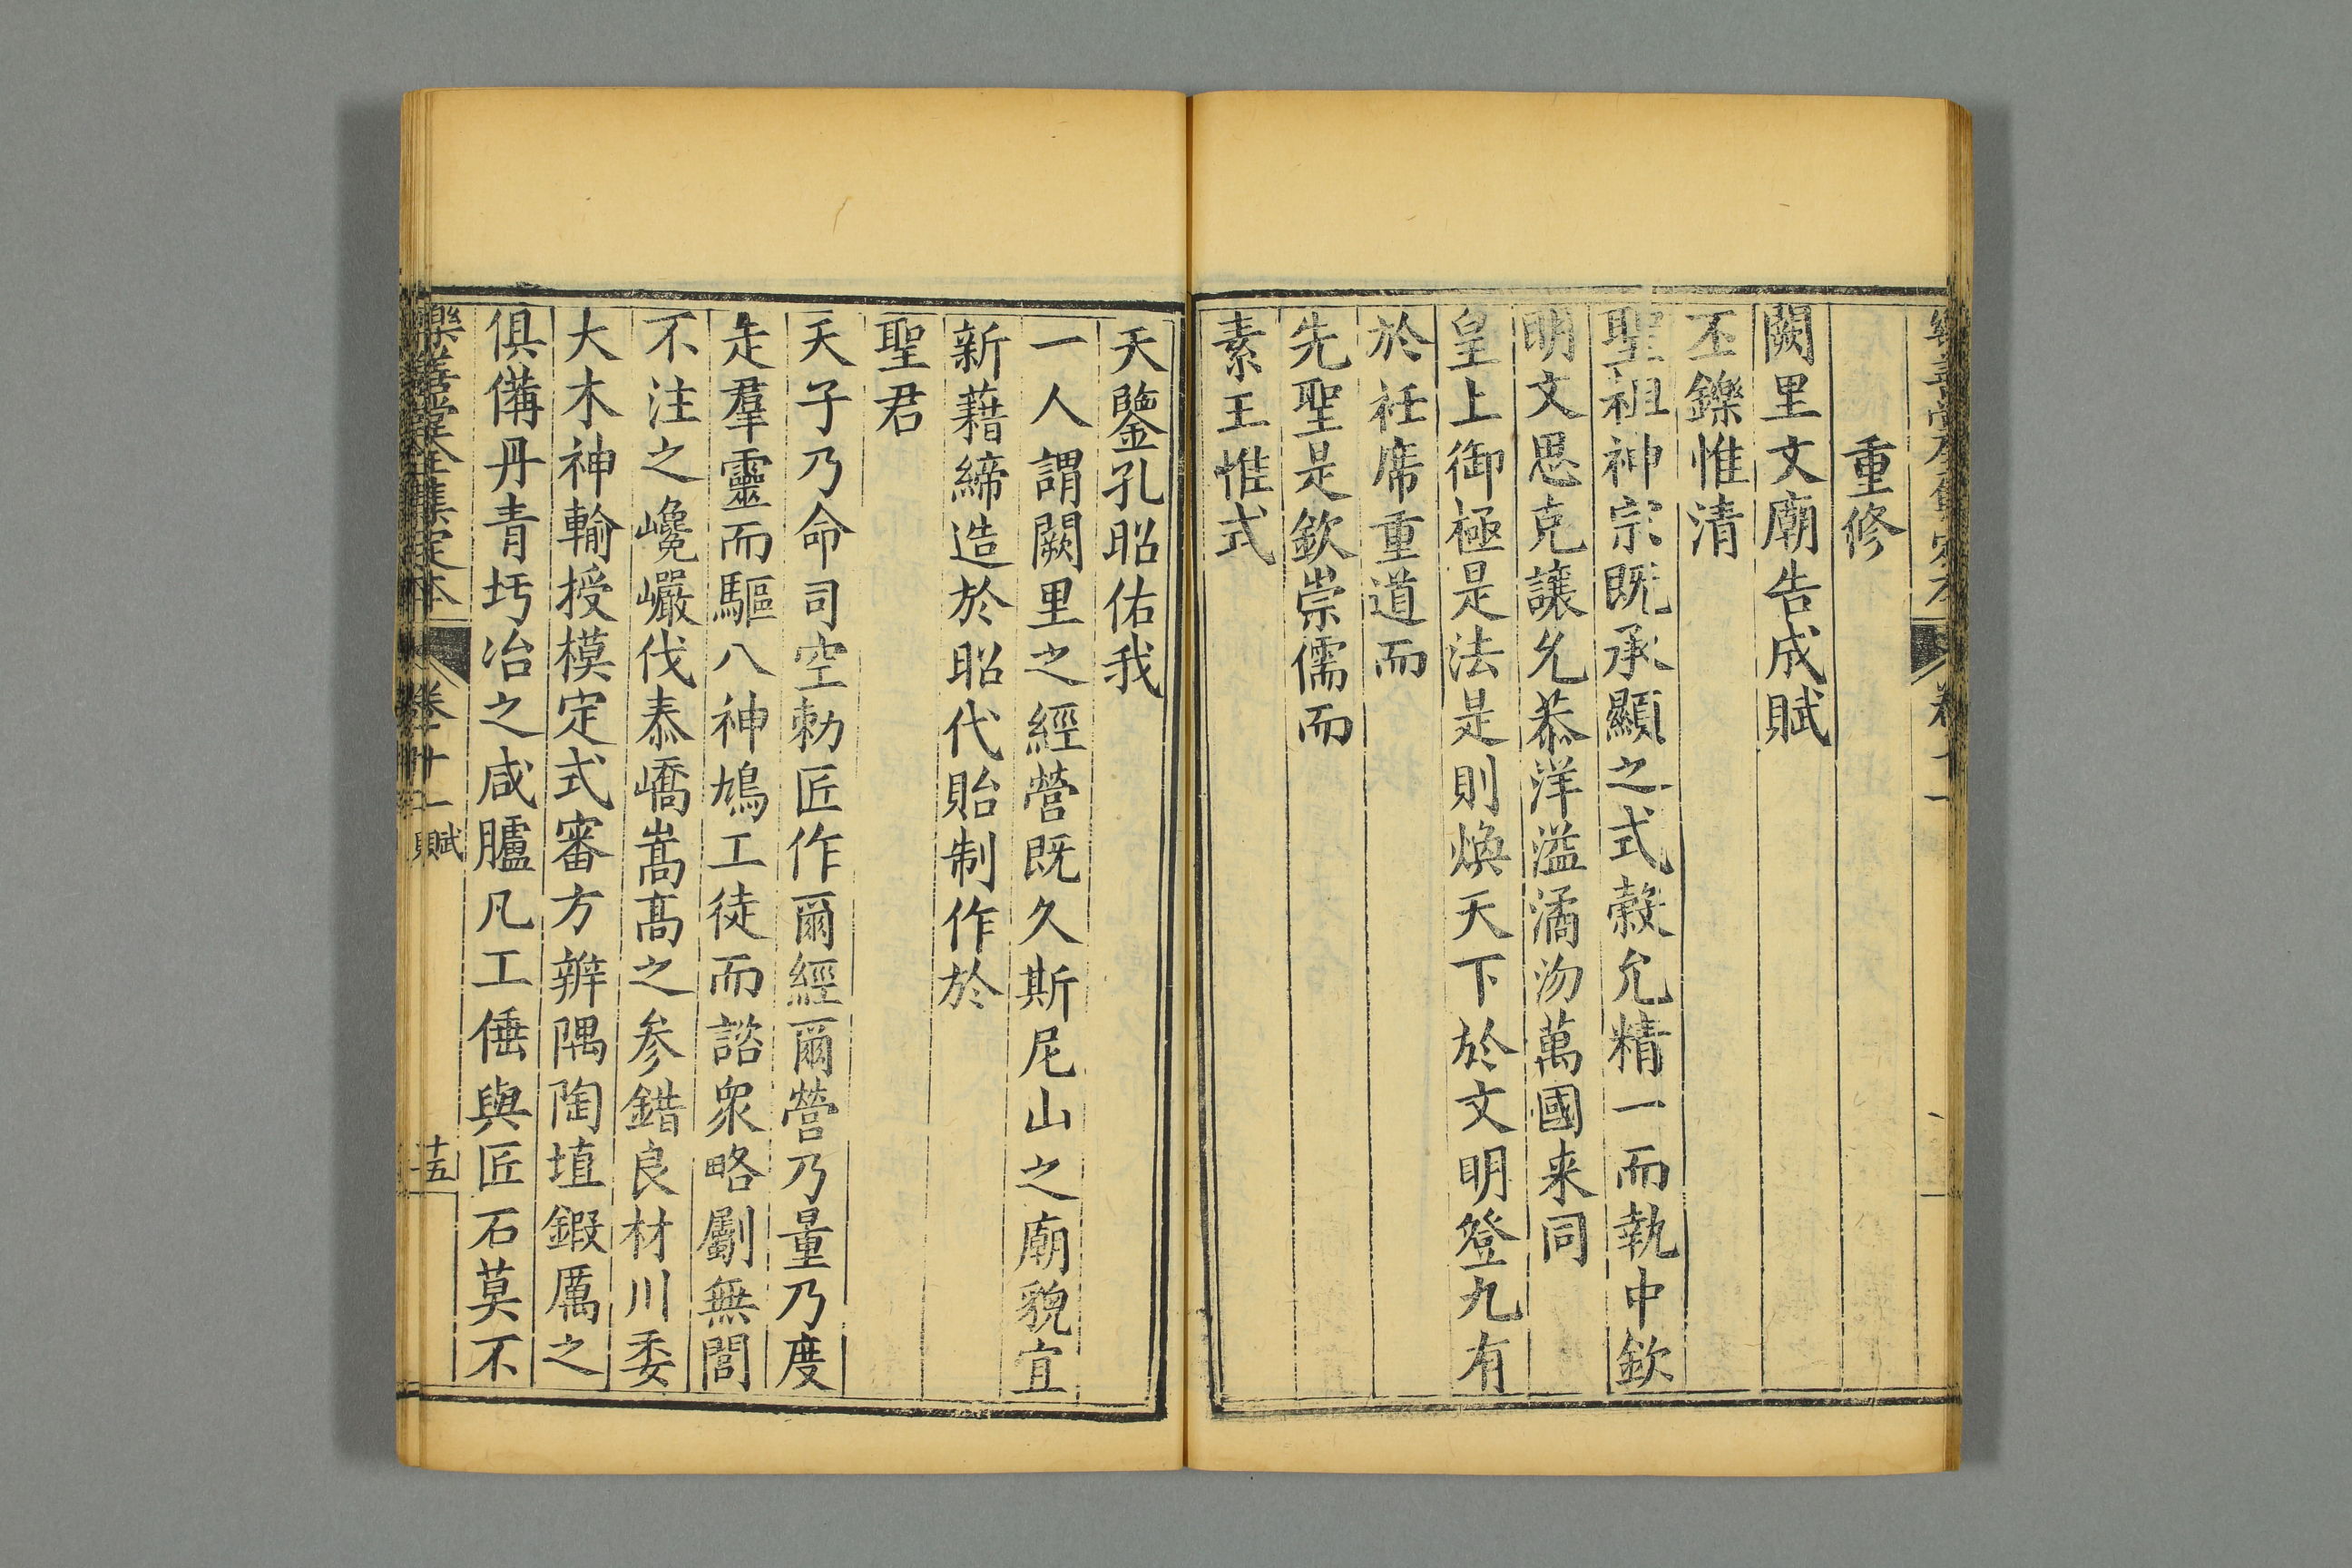 重修
闕里文廟告成賦
丕鑠惟清
聖祖神宗既承顯之式穀允精一而執中欽
明文思克讓允恭洋溢潏沕萬國来同
皇上御極是法是則煥天下於文明登九有
於衽席重道而
先聖是欽崇儒而
素王惟式
天鑒孔昭佑我
一人謂闕里之經營既久斯尼山之廟貌宜
新藉締造於昭代貽制作於
聖君
天子乃命司空勅匠作爾經爾營乃量乃度
走羣靈而驅八神鳩工徒而諮衆略劚無閭
不注之巉巖伐泰嶠嵩高之参錯良材川委
大木神輸授模定式審方辨隅陶埴鍛厲之
俱備丹青圬冶之咸臚凡工倕與匠石莫不
樂善堂全集定本
卷十一 賦
十五